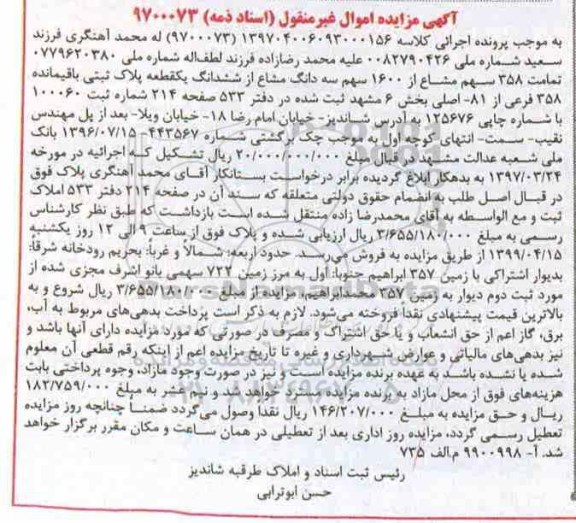 آگهی مزایده اموال غیرمنقول (اسناد ذمه) ۹۷۰۰۰۷۳
به موجب پرونده اجرائی کلاسه ۱۳۹۷۰۴۰۰۶۰۹۳۰۰۰۱۵۶ (۹۷۰۰۰۷۳) له محمد آهنگری فرزند
سعید شماره ملی ۰۰۸۲۷۹۰۴۲۶ علیه محمد رضازاده فرزند لطف‌اله شماره ملی ۰۷۷۹۶۲۰۳۸۰
تمامت ۳۵۸ سهم مشاع از ۱۶۰۰ سهم سه دانگ مشاع از ششدانگ یکقطعه پلاک ثبتی باقیمانده
۳۵۸ فرعی از ۸۱- اصلی بخش ۶ مشهد ثبت شده در دفتر ۵۳۳ صفحه ۲۱۴ شماره ثبت ۱۰۰۰۶۰
با شماره چاپی ۱۲۵۶۷۶ به آدرس شاندیز- خیابان امام رضا ۱۸- خیابان ویلا- بعد از پل مهندس
نقیب- سمت- انتهای کوچه اول به موجب چک برگشتی شماره ۴۴۳۵۶۷-۱۳۹۶/۰۷/۱۵ بانک
ملی شعبه عدالت مشهد در قبال مبلغ ۲۰/۰۰۰/۰۰۰/۰۰۰ ریال تشکیل که اجرائیه در مورخه
۱۳۹۷/۰۳/۲۴ به بدهکار ابلاغ گردیده برابر درخواست بستانکار آقای محمد آهنگری پلاک فوق
در قبال اصل طلب به انضمام حقوق دولتی متعلقه که سند آن در صفحه ۲۱۴ دفتر ۵۳۳ املاک
ثبت و مع الواسطه به آقای محمدرضا زاده منتقل شده است بازداشت که طبق نظر کارشناس
رسمی به مبلغ ۳/۶۵۵/۱۸۰/۰۰۰ ریال ارزیابی شده و پلاک فوق از ساعت ۹ الی ۱۲ روز یکشنبه
۱۳۹۹/۰۴/۱۵ از طریق مزایده به فروش می‌رسد. حدود اربعه: شمالاً و غرباً: بحریم رودخانه شرقاً:
بدیوار اشتراکی با زمین ۳۵۷ ابراهیم جنوباً: اول به مرز زمین ۷۲۲ سهمی بانو اشرف مجزی شده از
مورد ثبت دوم دیوار به زمین ۳۵۷ محمدابراهیم، مزایده از مبلغ ۳/۶۵۵/۱۸۰/۰۰۰ ریال شروع و به
بالاترین قیمت پیشنهادی نقدا فروخته می‌شود. لازم به ذکر است پرداخت بدهی‌های مربوط به آب،
برق، گاز اعم از حق انشعاب و یا حق اشتراک و مصرف در صورتی که مورد مزایده دارای آنها باشد و
نیز بدهی‌های مالیاتی و عوارض شهرداری و غیره تا تاریخ مزایده اعم از اینکه رقم قطعی آن معلوم
شده یا نشده باشد به عهده برنده مزایده است و نیز در صورت وجود مازاد، وجوه پرداختی بابت
هزینه‌های فوق از محل مازاد به برنده مزایده مسترد خواهد شد و نیم عشر به مبلغ ۱۸۲/۷۵۹/۰۰۰
ریال و حق مزایده به مبلغ ۱۴۶/۲۰۷/۰۰۰ ریال نقدا وصول می‌گردد ضمناً چنانچه روز مزایده
تعطیل رسمی گردد، مزایده روز اداری بعد از تعطیلی در همان ساعت و مکان مقرر برگزار خواهد
شد. آ- ۹۹۰۰۹۹۸ م.الف ۷۳۵
رئیس ثبت اسناد و املاک طرقبه شاندیز
حسن ابوترابی